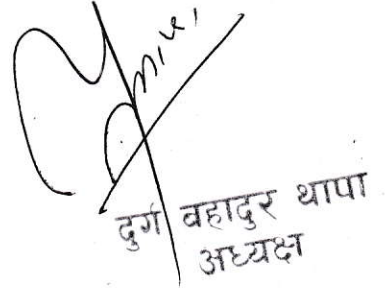 दुर्ग वहादुर थापा
अध्यक्ष